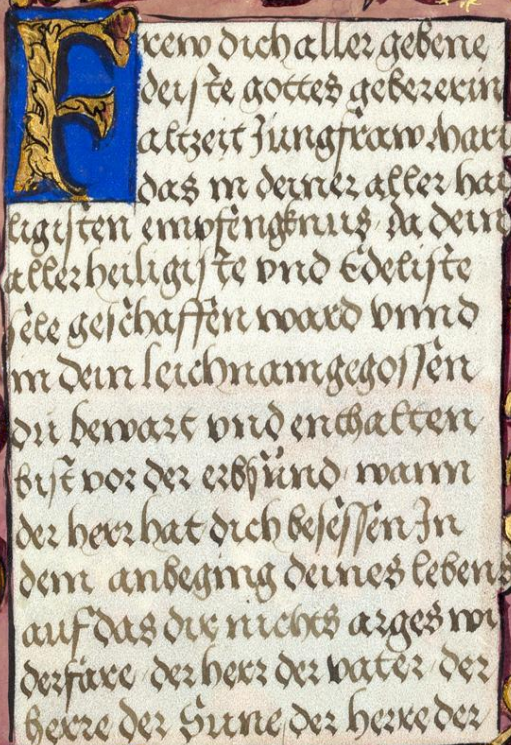 Frew dich aller gebene
deiste gottes gebererin
altzeit Jungfraw Mari
das in deiner aller hai
ligisten empfengknus da dein
allerheiligiste vnd Edeliste
sele geschaffen ward vnnd
in dein leichnam gegossen
du bewart vnd enthalten
bist vor der erbsünd wann
der herr hat dich besessen In
dem anbeging deines lebens
auf das dir nichts arges wi
derfare der herr der vater der
herre der Sune der herre der